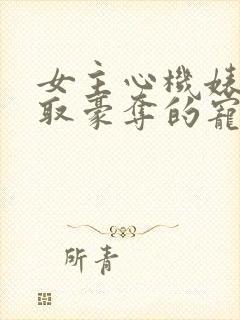 女主心機婊
取豪奪的寵
所青